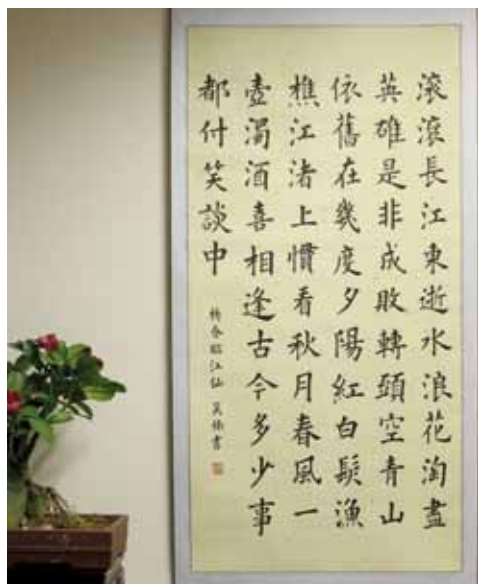 滾滾長江東逝水浪花淘盡
英雄是非成敗轉頭空青山
依舊在幾度夕陽紅白髮漁
樵江渚上慣看秋月春風一
壺濁酒喜相逢古今多少事
都付笑談中
楊臨江仙 書